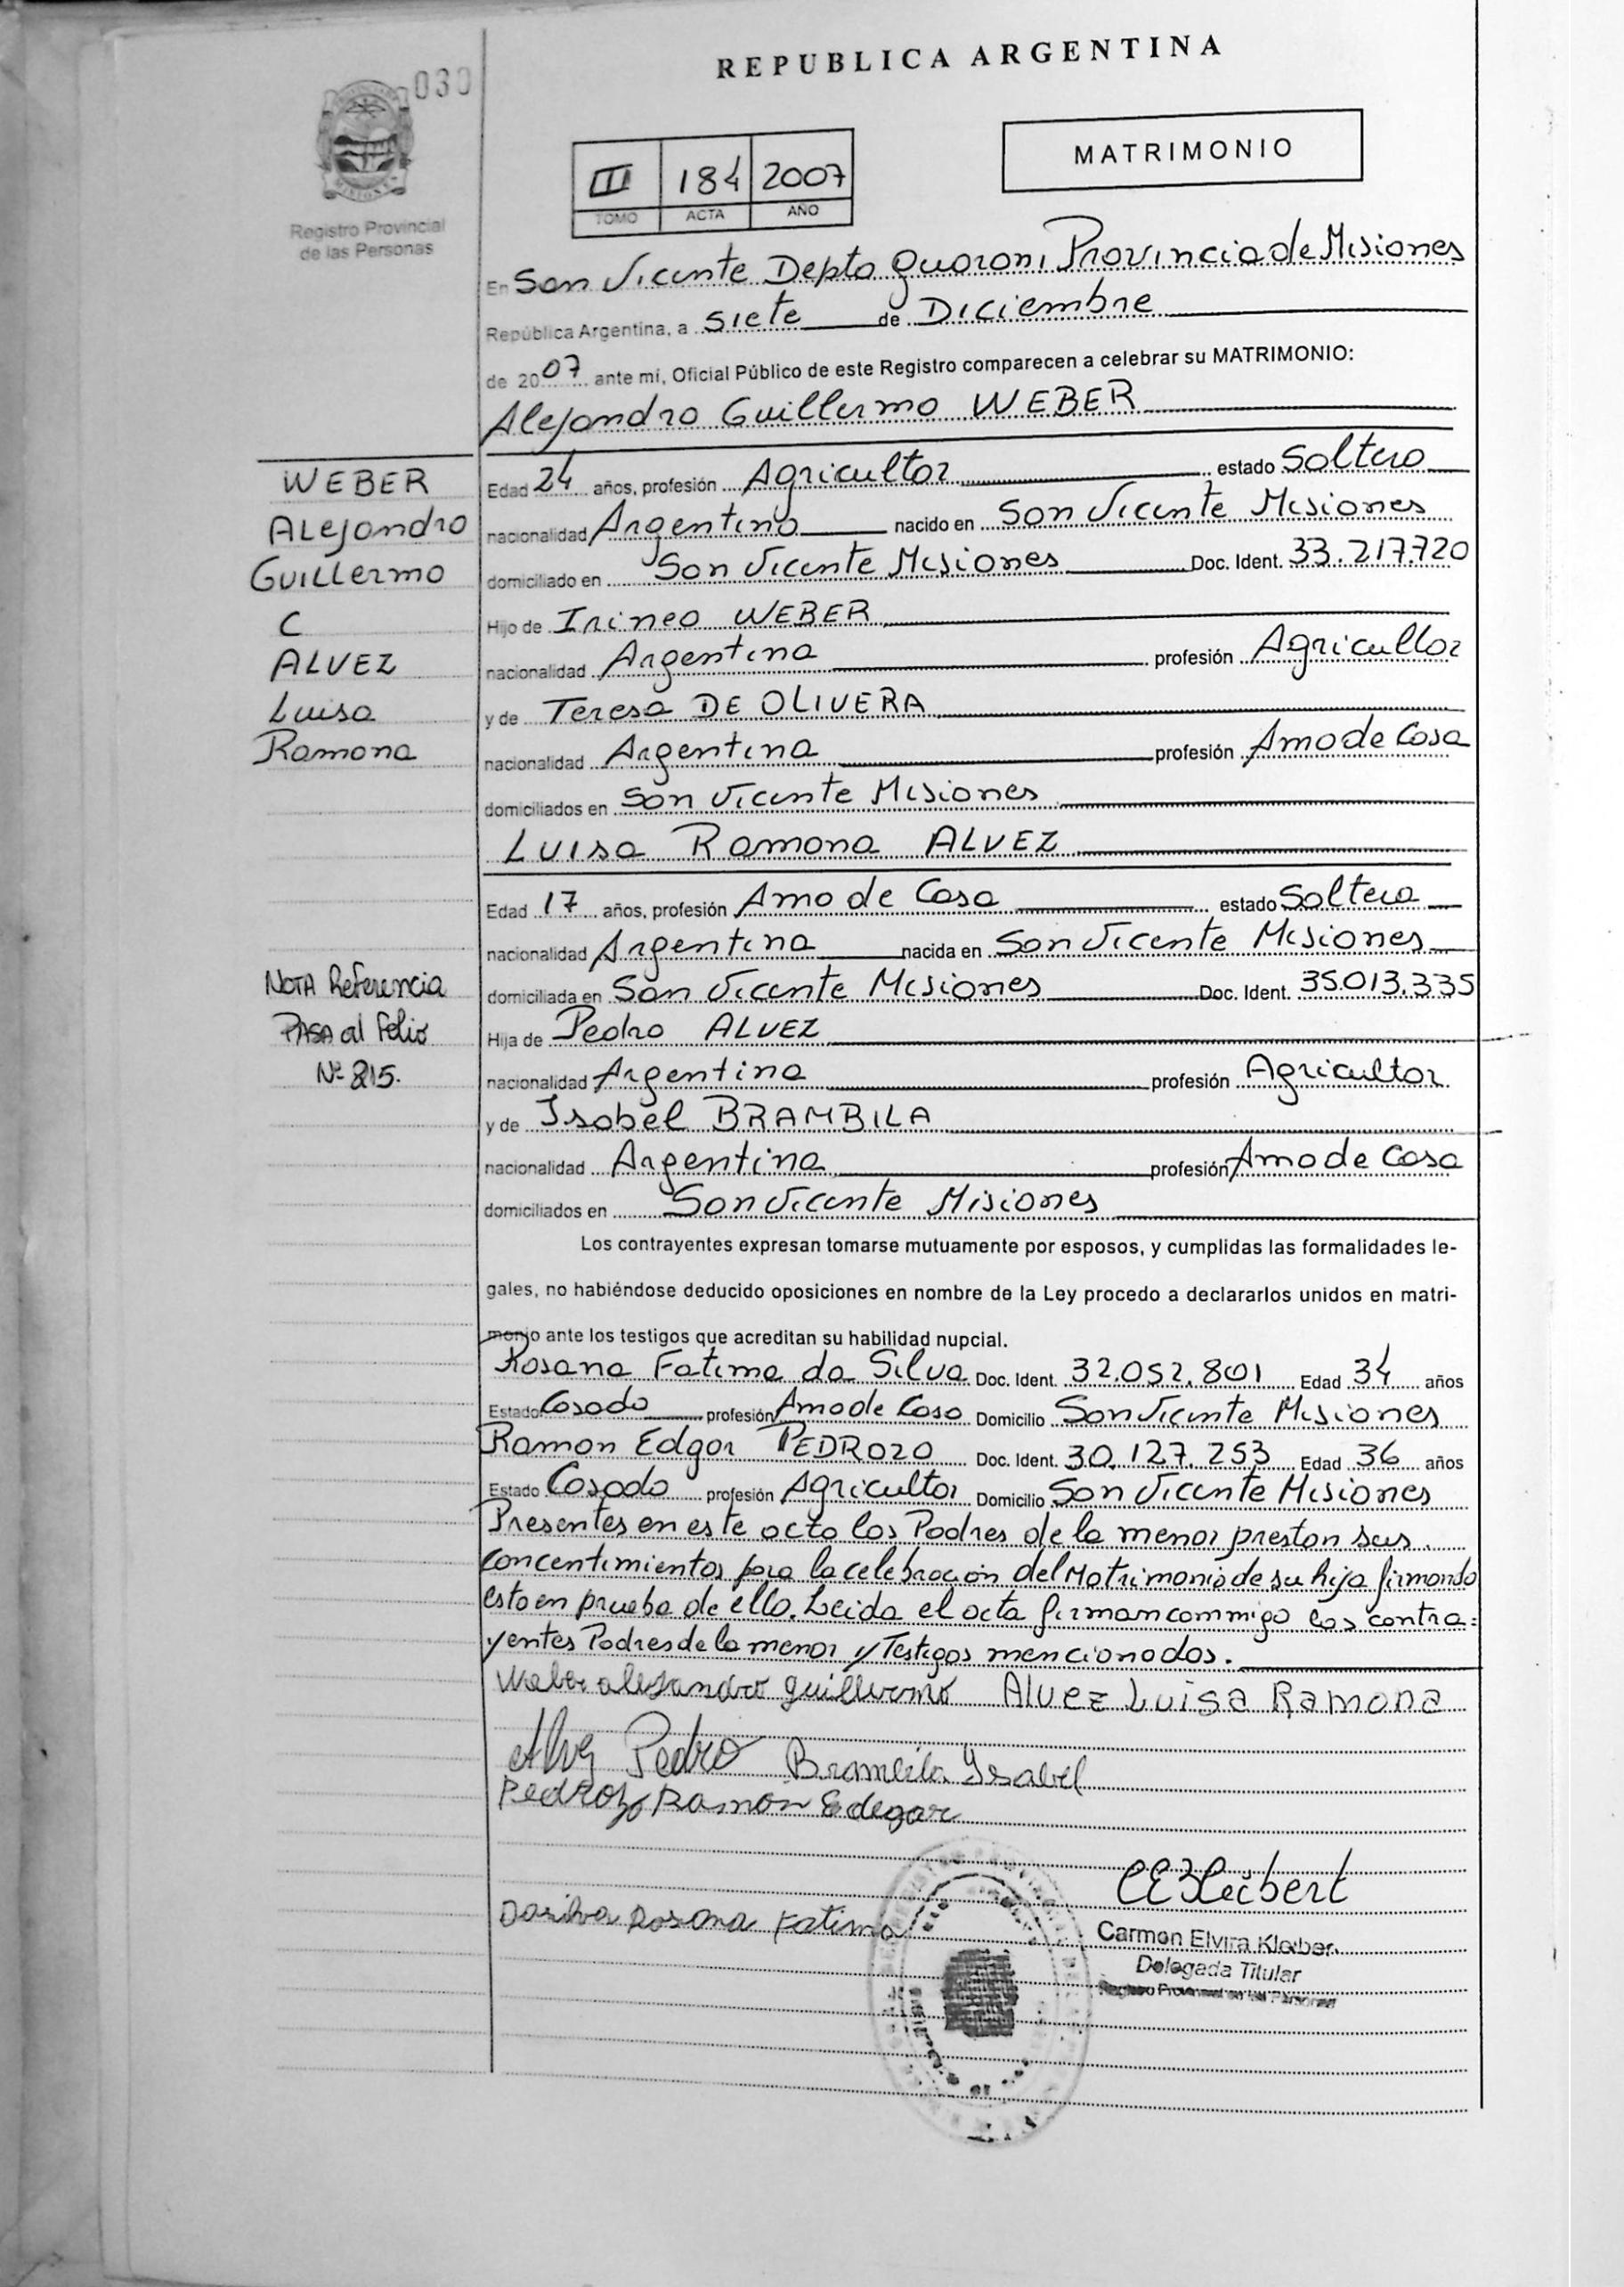 REPUBLICA ARGENTINA
030
MATRIMONIO
III 184 2007
TOMO ACTA AÑO
Registro Provincial
de las Personas
En San Vicente Depto Guarani Provincia de Misiones
República Argentina, a siete de Diciembre
de 2007 ante mí, Oficial Público de este Registro comparecen a celebrar su MATRIMONIO:
Alejandro Guillermo WEBER
WEBER
Alejandro
Guillermo
C
ALVEZ
Luisa
Ramona
Edad 24 años, profesión Agricultor estado Soltero
nacionalidad Argentino nacido en San Vicente Misiones
domiciliado en San Vicente Misiones Doc. Ident. 33.217.720
Hijo de Irineo WEBER
nacionalidad Argentina profesión Agricultor
y de Teresa DE OLIVERA
nacionalidad Argentina profesión Ama de Casa
domiciliados en San Vicente Misiones
Luisa Ramona ALVEZ
Edad 17 años, profesión Ama de Casa estado Soltera
nacionalidad Argentina nacida en San Vicente Misiones
domiciliada en San Vicente Misiones Doc. Ident. 35.013.335
Hija de Pedro ALVEZ
nacionalidad Argentina profesión Agricultor
y de Isabel BRAMBILA
nacionalidad Argentina profesión Ama de Casa
domiciliados en San Vicente Misiones
NOTA Referencia
PASA al Folio
Nº 215.
Los contrayentes expresan tomarse mutuamente por esposos, y cumplidas las formalidades le-
gales, no habiéndose deducido oposiciones en nombre de la Ley procedo a declararlos unidos en matri-
monio ante los testigos que acreditan su habilidad nupcial.
Rosana Fatima da Silva Doc. Ident. 32.052.801 Edad 34 años
Estado Casada profesión Ama de Casa Domicilio San Vicente Misiones
Ramon Edgar PEDROZO Doc. Ident. 30.127.253 Edad 36 años
Estado Casado profesión Agricultor Domicilio San Vicente Misiones
Presentes en este acto los Padres de la menor prestan sus
concentimientos para la celebración del Matrimonio de su hija firmando
esta en prueba de ello. Leida el acta firman commigo los contra=
yentes Padres de la menor y Testigos mencionados.
Weber alejandro guillermo Alvez Luisa Ramona
Alvez Pedro Brambila Ysabel
Pedrozo Ramon Edegar
Dasilva Rosana Fatima
Carmen Elvira Kleiber
Delegada Titular
Registro Provincial de las Personas